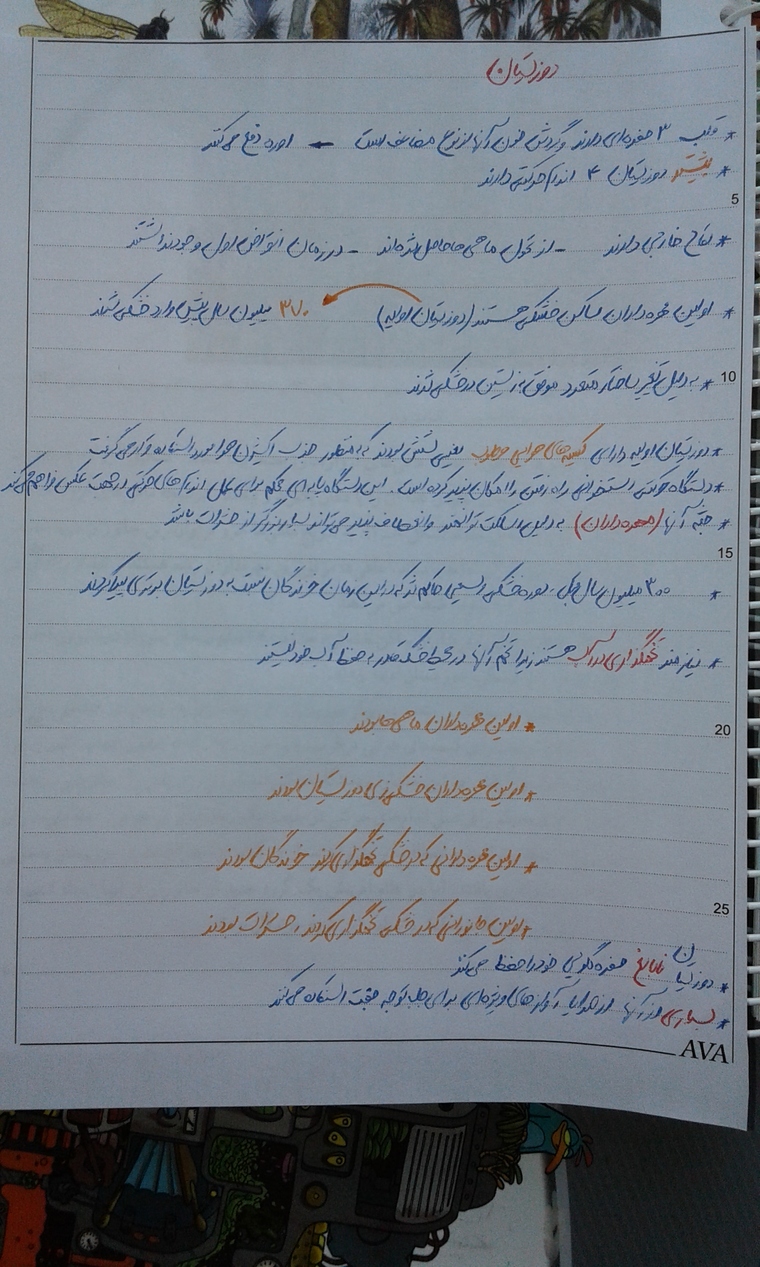 دوزیستان
* قلب ۳ حفره‌ای دارند و گردش خون آنها از نوع مضاعف است – اوره دفع می‌کنند
* بیشتر دوزیستان ۴ اندام حرکتی دارند
5
* لقاح خارجی دارند – از تحول ماهی‌ها حاصل شده‌اند – در زمان انقراض اول وجود نداشتند
* اولین مهره‌داران ساکن خشکی هستند (دوزیستان اولیه) ۳۷۰ میلیون سال پیش وارد خشکی شدند
10
* به دلیل تغییر ساختار متعدد موفق به زیستن در خشکی شدند
* دوزیستان اولیه دارای کیسه‌های هوایی مرطوب یعنی شش بودند که به منظور جذب اکسیژن هوا مورد استفاده قرار می‌گرفت
* دستگاه حرکتی استخوانی راه رفتن را امکان پذیر کرده است. این دستگاه پایه‌ای محکم برای عمل اندام‌های حرکتی در جهت عکس فراهم می‌کند
* جثه آنها (مهره‌داران) به دلیل اسکلت توانمند و انعطاف پذیر می‌تواند بسیار بزرگتر از حشرات باشد
15
* ۳۰۰ میلیون سال قبل، دوره خشکی وسیعی حاکم شد که در این زمان خزندگان نسبت به دوزیستان برتری پیدا کردند
* نیازمند تخمگذاری در آب هستند زیرا تخم آنها در محیط خشک قادر به حفظ آب خود نیستند
20
* اولین مهره‌داران ماهی‌ها بودند
* اولین مهره‌داران خشکی‌زی دوزیستان بودند
* اولین مهره‌دارانی که در خشکی تخمگذاری کردند خزندگان بودند
25
* اولین جانورانی که در خشکی تخمگذاری کردند، حشرات بودند
* دوزیستان نابالغ حفره گلویی خود را حفظ می‌کند
* بسیاری از آنها از صدا یا آوازهای ویژه‌ای برای جلب توجه جفت استفاده می‌کنند
AVA